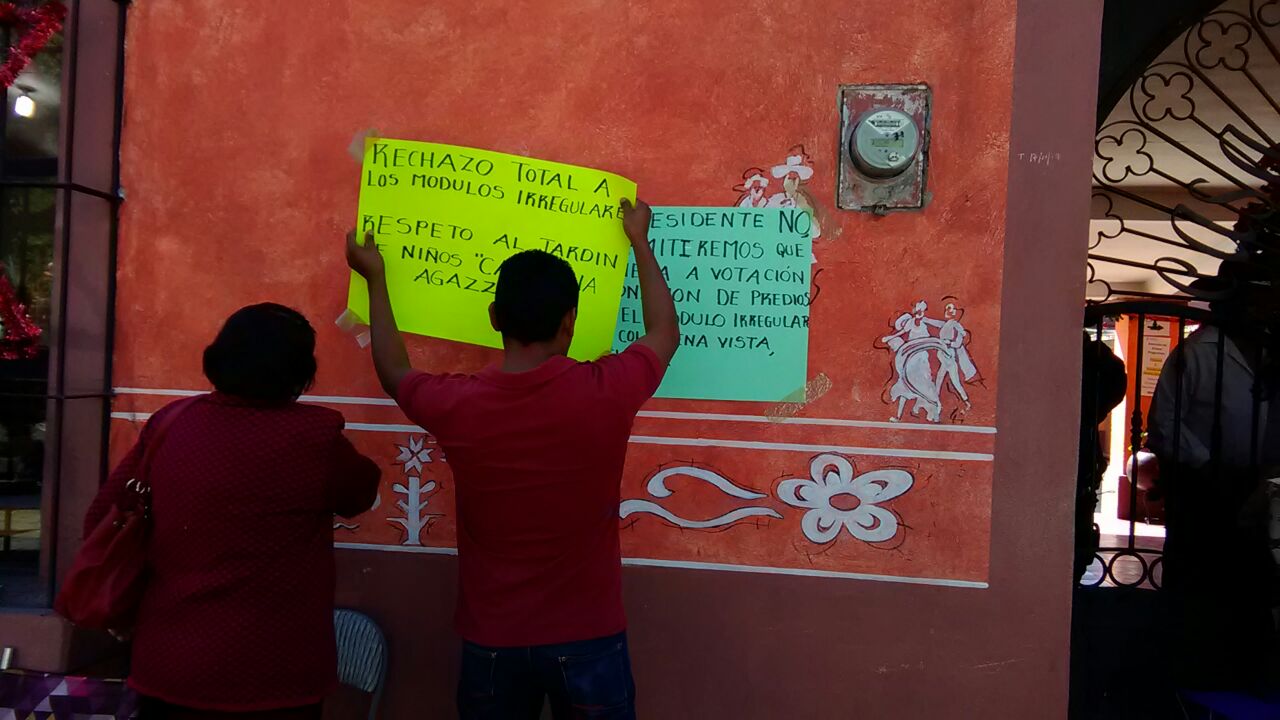 RECHAZO TOTAL A
LOS MODULOS IRREGULARE
RESPETO AL JARDIN
E NIÑOS "CA
AGAZZ
ESIDENTE NO
MITIREMOS QUE
A VOTACIÓN
ON DE PREDIOS
EL MODULO IRREGULAR
COL ENA VISTA,